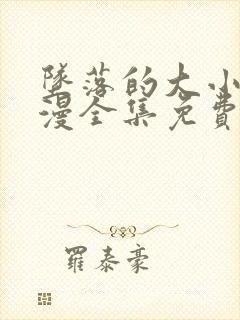 墜落的大小
漫全集免費
羅泰豪